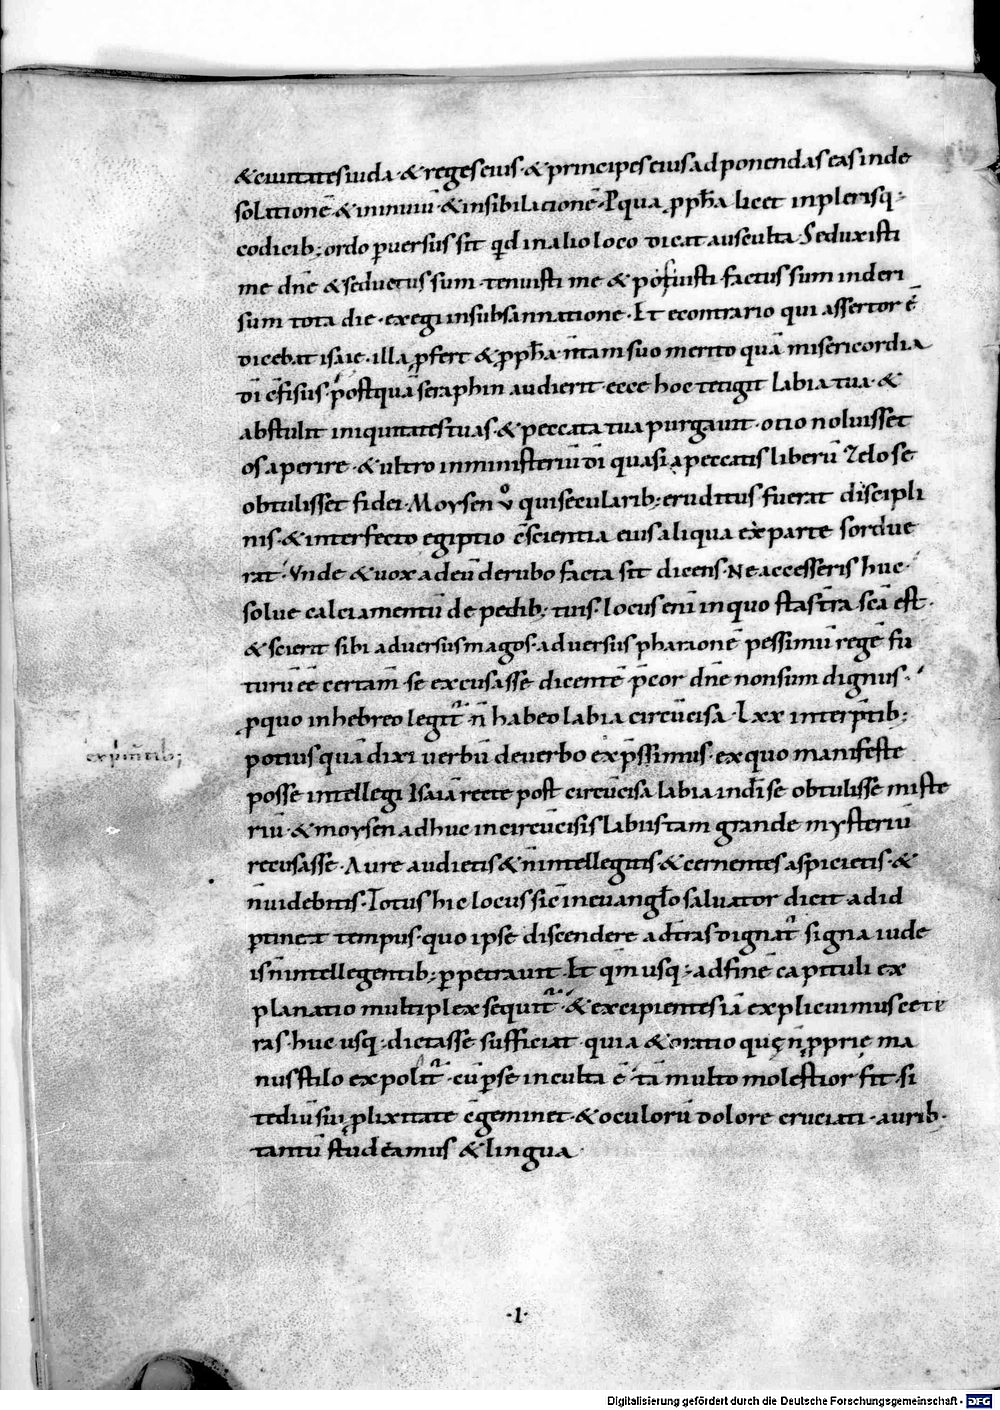 & ciuitates iuda · & reges eius · & principes eius ad ponendas eas in de
solationē & in inuiū · & in sibilacionē · Pqua ꝓph̄a licet in plerisq;
codicib; ordo ꝑuersus sit qd̄ in alio loco dicat ausculta · Seduxisti
me dn̄e & seductus sum · tenuisti me & potuisti · factus sum in deri
sum tota die · exegi in subsannatione · Et econtrario qui assertor ē
dicebat isaie · illa ꝓfert & ꝓph̄a n̄ tam suo merito quā misericordia
dī c̄fisus · postquā seraphin audierit · ecce hoc tetigit labia tua · &
abstulit iniquitates tuas · & peccata tua purgauit · otio noluisset
os aperire · & ultro in ministeriū dī quasi a peccatis liberū zelo se
obtulisset fidei · Moysen v̊ qui secularib; eruditus fuerat discipli
nis · & interfecto egiptio c̄scientia eius aliqua ex parte sordue
rat · Vnde & uox ad eū de rubo facta sit dicens · Ne accesseris huc ·
solue calciamentū de pedib; tuis · locus eni in quo stas t̄ra sc̄a est ·
& scierit sibi aduersus magos · aduersus pharaonē pessimū regē fu
turū ēē certam̄ · se excusasse dicentē p̄cor dn̄e non sum dignus ·
ꝓ quo in hebreo legit̄ n̄ habeo labia circūcisa · Lxx interp̄tib;
potius quā dixi uerbū de uerbo exp̄ssimus · ex quo manifeste
posse intellegi Isaiā recte post circūcisa labia in dī se obtulisse miste
riū · & moysen adhuc incircūcisis labiis tam grande mysteriū
recusasse · Aure audietis & n̄ intellegitis & cernentes aspicietis · &
n̄ uidebitis · Totus hic locus sic̄ in euangl̄o saluator dicit ad id
ꝑtinet tempus · quo ipse discendere ad t̄ras dignat̄ signa iude
is n̄ intellegentib; ꝑpetrauit · Et qm̄ usq; ad finē capituli ex
planatio multiplex sequit̄ · & excipientes iā explicuimus cete
ras · huc usq; dictasse sufficiat · quia & oratio quę n̄ ꝓprię ma
nus stilo expolit̄ · cū ꝑ se inculta ē · tā multo molestior fit · si
tediū sui ꝓlixitate c̄geminet · & oculorū dolore cruciati · aurib ·
tantū studeamus & lingua
·1·
Digitalisierung gefördert durch die Deutsche Forschungsgemeinschaft · DFG